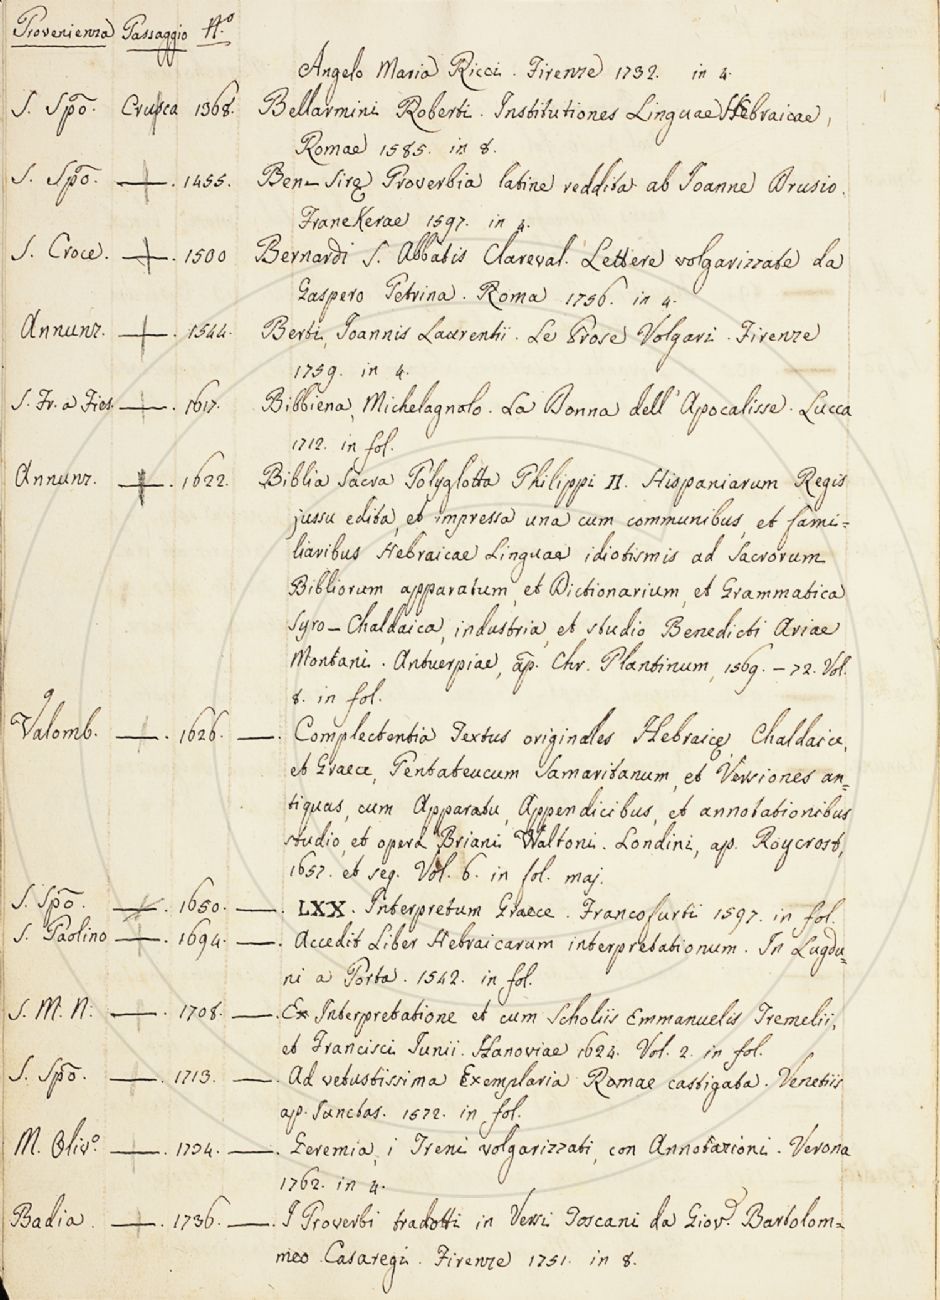 Provenienza Passaggio N.º
Angelo Maria Ricci. Firenze 1732. in 4.
S. Spõ. Crusca 1368. Bellarmini Roberti. Institutiones Linguae Hebraicae,
Romae 1585. in 8.
S. Spõ. — . 1455. Ben-Sirę Proverbia latine reddita ab Joanne Drusio.
FraneKerae 1597. in 4.
S. Croce. — . 1500 Bernardi S. Abbatis Clareval. Lettere volgarizzate da
Gaspero Petrina. Roma 1756. in 4.
Annunz. — . 1544. Berti, Joannis Laurentii. Le Prose Volgari. Firenze
1759. in 4.
S. Fr. a Fies. — . 1617. Bibbiena, Michelagnolo. La Donna dell'Apocalisse. Lucca
1712. in fol.
Annunz. — . 1622. Biblia Sacra Polyglotta Philippi II. Hispaniarum Regis
jussu edita, et impressa una cum communibus, et fami=
liaribus Hebraicae Linguae idiotismis ad Sacrorum
Bibliorum apparatum, et Dictionarium, et Grammatica
Syro-Chaldaica, industria, et studio Benedicti Ariae
Montani. Antuerpiae, ap. Chr. Plantinum, 1569. - 72. Vol.
8. in fol.
Valomb. — . 1626. — . Complectentia Textus originales Hebraicę, Chaldaice,
et Graece, Pentateucum Samaritanum, et Versiones an=
tiquas, cum Apparatu, Appendicibus, et annotationibus
studio, et opera Briani Waltoni. Londini, ap. Roycrost,
1657. et seq. Vol. 6. in fol. maj.
S. Spõ. — . 1650. — . LXX. Interpretum Graece. Francofurti 1597. in fol.
S. Paolino — . 1694. — . Accedit Liber Hebraicarum interpretationum. In Lugdu=
ni a Porta. 1542. in fol.
S. M. N. — . 1708. — . Ex Interpretatione et cum Scholiis Emmanuelis Tremelii,
et Francisci Junii. Hanoviae 1624. Vol. 2. in fol.
S. Spõ. — . 1713. — . Ad vetustissima Exemplaria Romae castigata. Venetiis
ap. Junctas. 1572. in fol.
M. Oliv.º — . 1734. — . Geremia, i Treni volgarizzati, con Annotazioni. Verona
1762. in 4.
Badia. — . 1736. — . I Proverbi tradotti in Versi Toscani da Giov. Bartolom=
meo Casaregi. Firenze 1751. in 8.